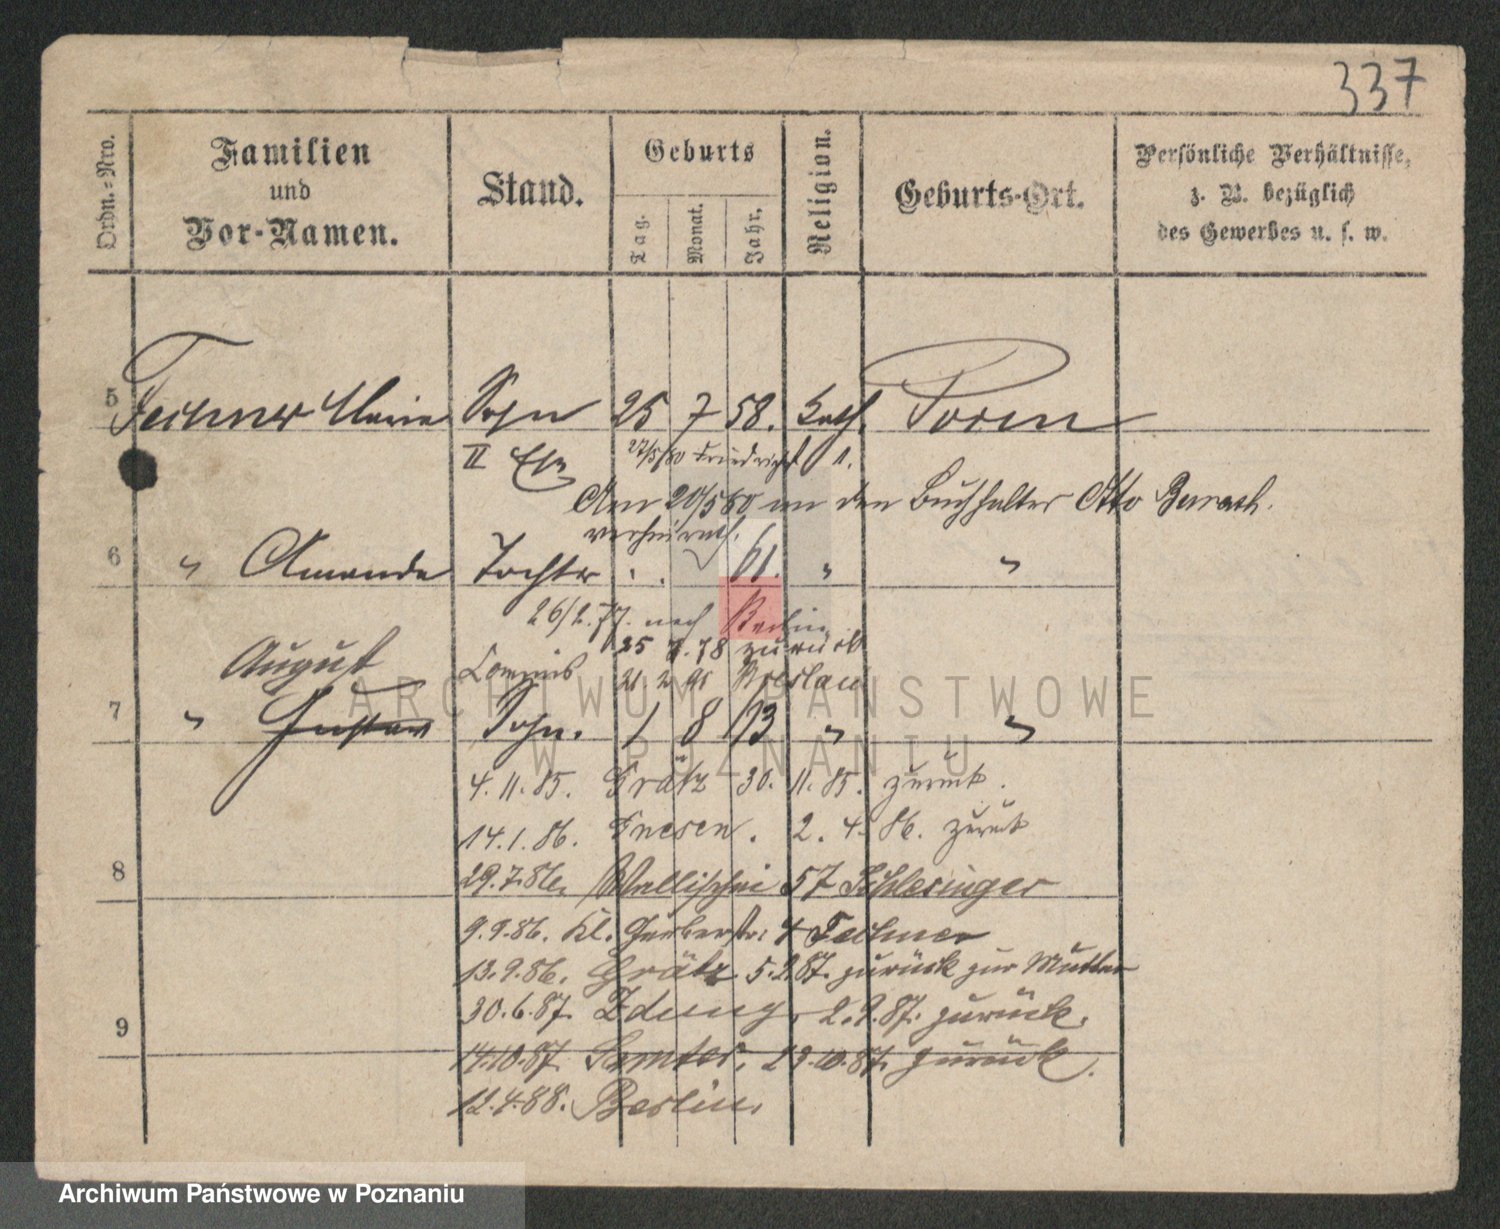 337
Ordn.=Nro.
Familien
und
Vor-Namen.
Stand.
Geburts
Tag.
Monat.
Jahr.
Religion.
Geburts-Ort.
Persönliche Verhältnisse,
z. B. bezüglich
des Gewerbes u. s. w.
5 Fechner Marie 25 7 58. Kath. Posen
II 27/5/80 Friedrichst
Am 20/5 80 an den Buchhalter Otto
verheirath.
6 " Amanda Tochter . . 61. " "
26/2.77. nach Berlin
25 7.78 zurück
August Commis 21 2 91 Breslau
7 " Gustav Sohn. 1 8 73 " "
4.11.85. Grätz 30.11.85. zurück.
14.1.86. Gnesen. 2.4.86. zurück
8 29.7.86. Wallischei 57 Schlesinger
9.9.86. Kl. Gerberstr: 4 Fechner
13.9.86. Grätz 5.2.87. zurück zur Mutter
9 30.6.87. Zduny, 2.9.87. zurück.
14.10.87. Samter, 29.10.87. zurück.
12.4.88. Berlin.
ARCHIWUM PAŃSTWOWE
W POZNANIU
Archiwum Państwowe w Poznaniu